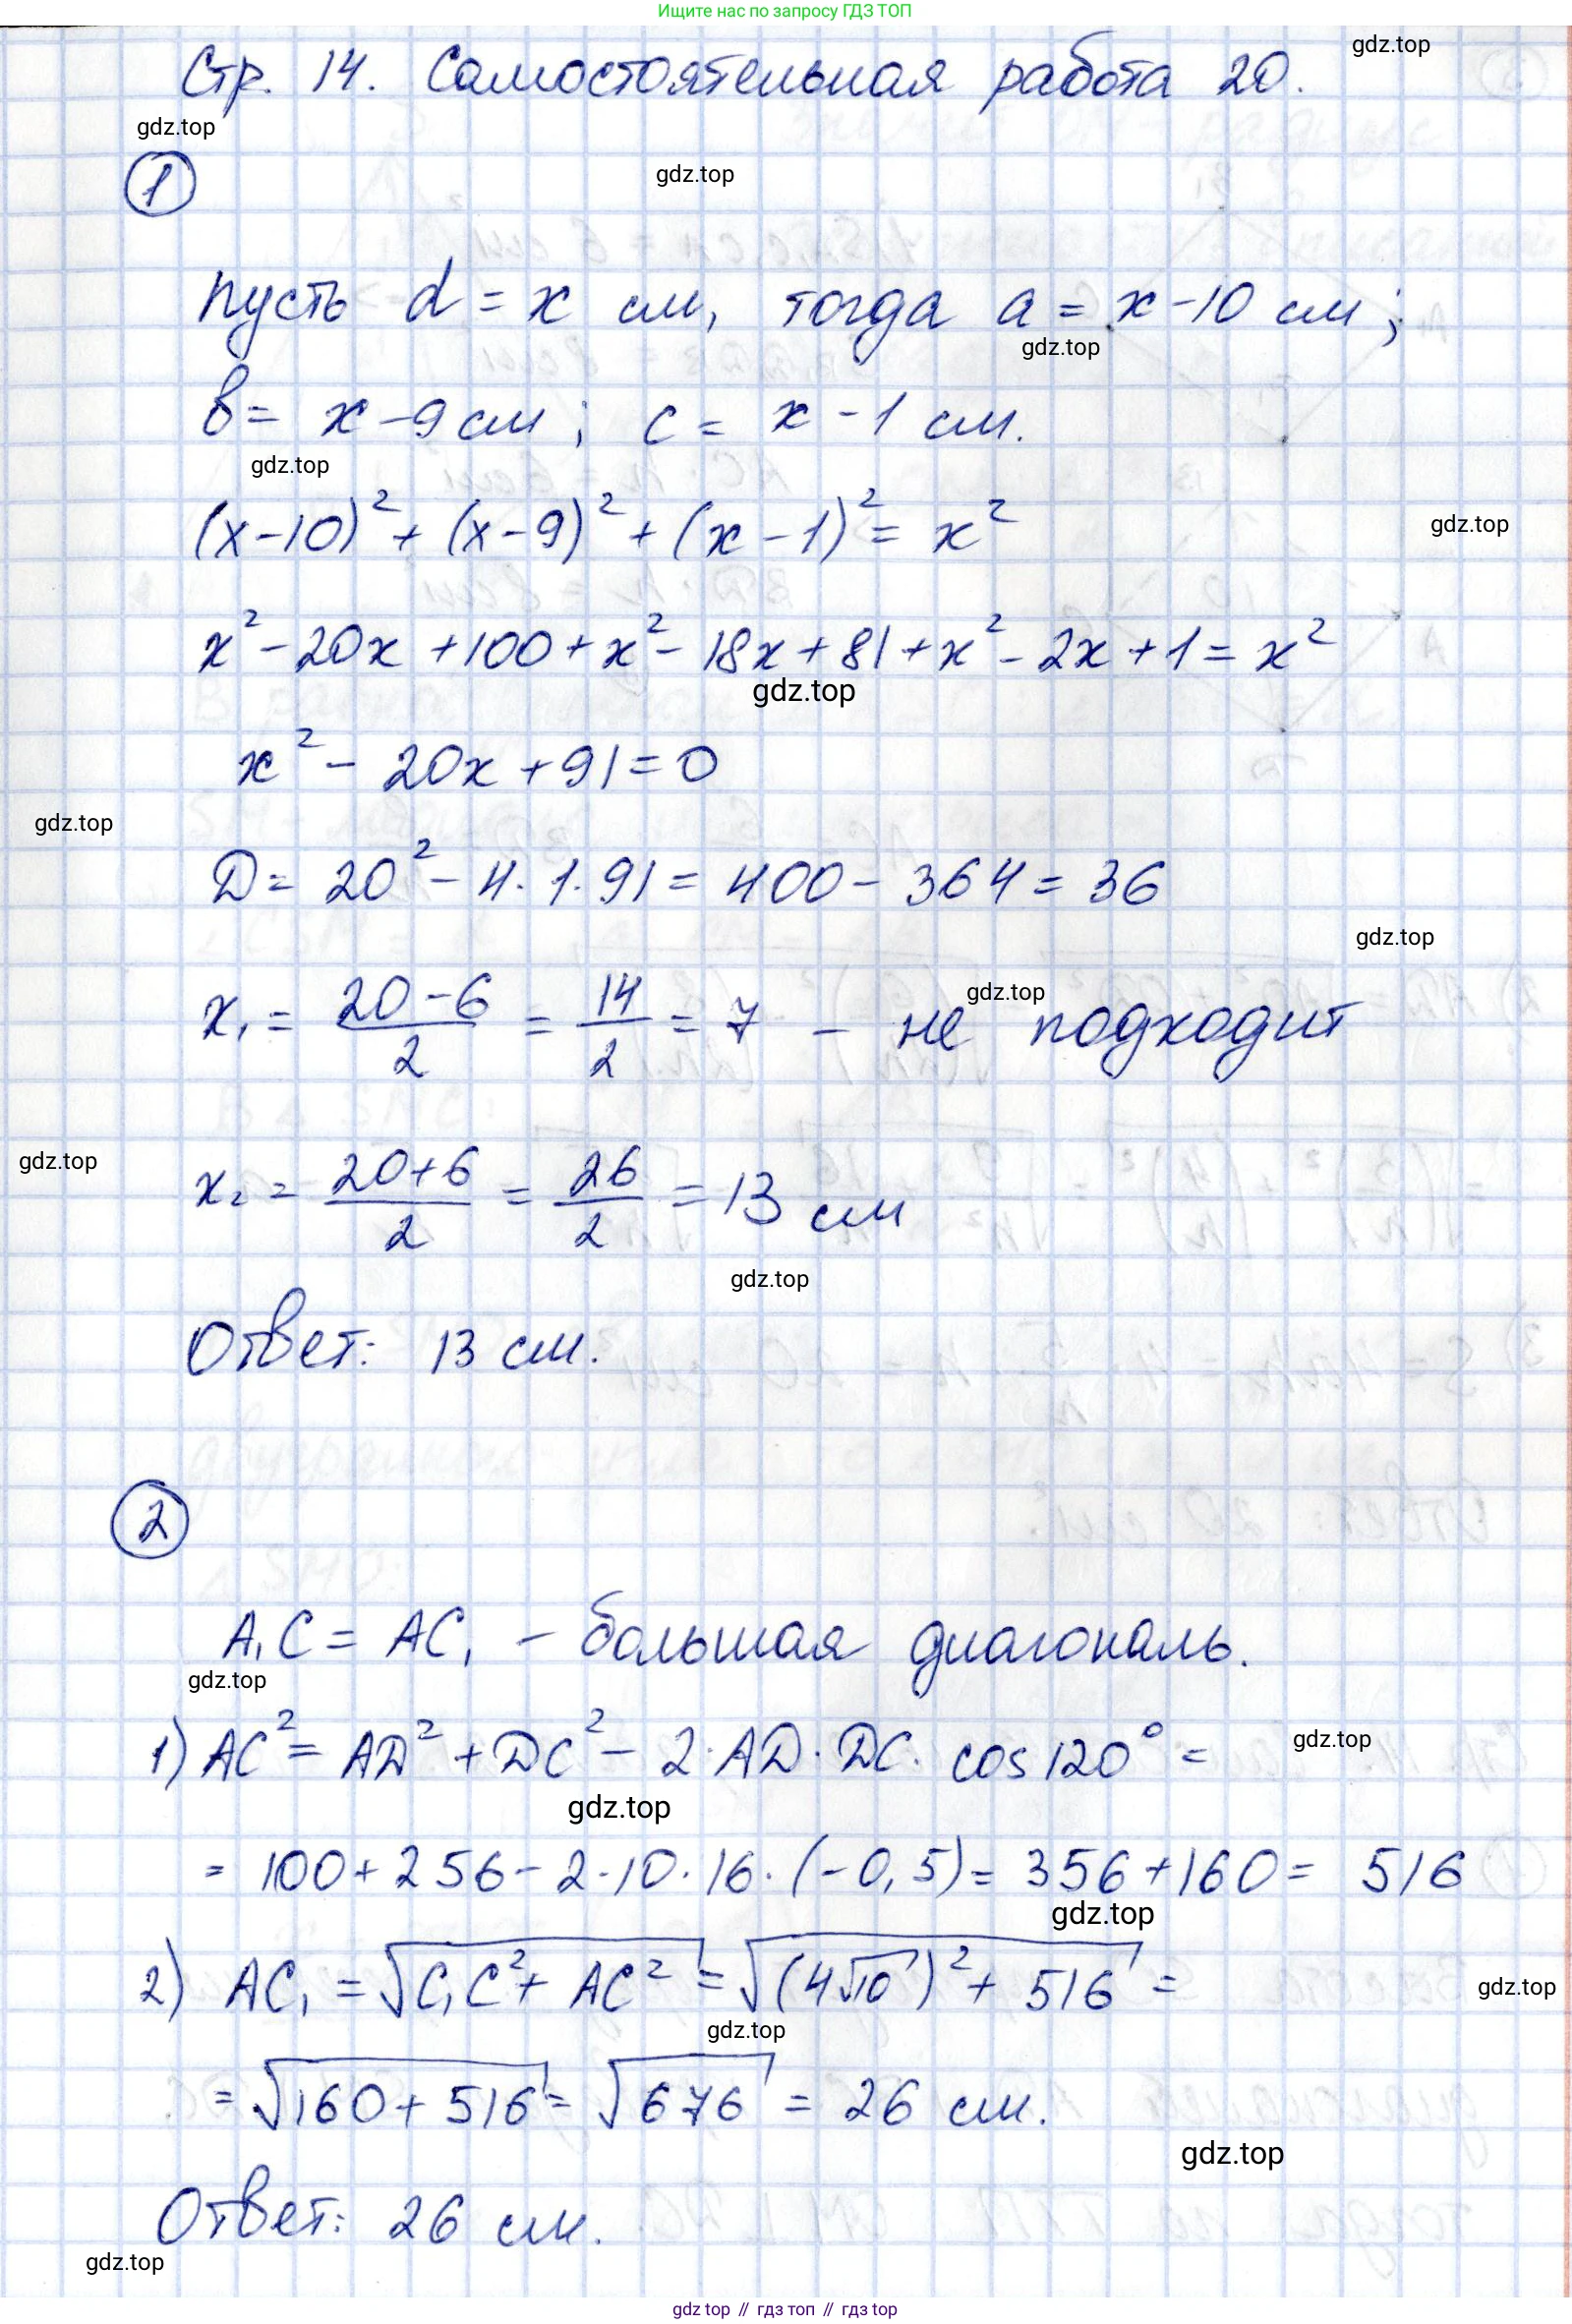 Ищите нас по запросу ГДЗ ТОП
Стр. 14. Самостоятельная работа 20.
gdz.top
gdz.top
1
gdz.top
пусть d = x см, тогда a = x - 10 см;
gdz.top
в = x - 9 см; c = x - 1 см.
gdz.top
(x-10)² + (x-9)² + (x-1)² = x²
gdz.top
x² - 20x + 100 + x² - 18x + 81 + x² - 2x + 1 = x²
gdz.top
x² - 20x + 91 = 0
gdz.top
D = 20² - 4·1·91 = 400 - 364 = 36
gdz.top
x₁ = (20-6)/2 = 14/2 = 7 - не подходит
gdz.top
gdz.top
x₂ = (20+6)/2 = 26/2 = 13 см
gdz.top
Ответ: 13 см.
2
A₁C = AC₁ - большая диагональ.
gdz.top
1) AC² = AD² + DC² - 2·AD·DC·cos120° =
gdz.top
gdz.top
= 100 + 256 - 2·10·16·(-0,5) = 356 + 160 = 516
gdz.top
2) AC₁ = √(C₁C² + AC²) = √((4√10)² + 516) =
gdz.top
gdz.top
= √(160 + 516) = √676 = 26 см.
gdz.top
Ответ: 26 см.
gdz.top
gdz top // гдз топ // гдз top